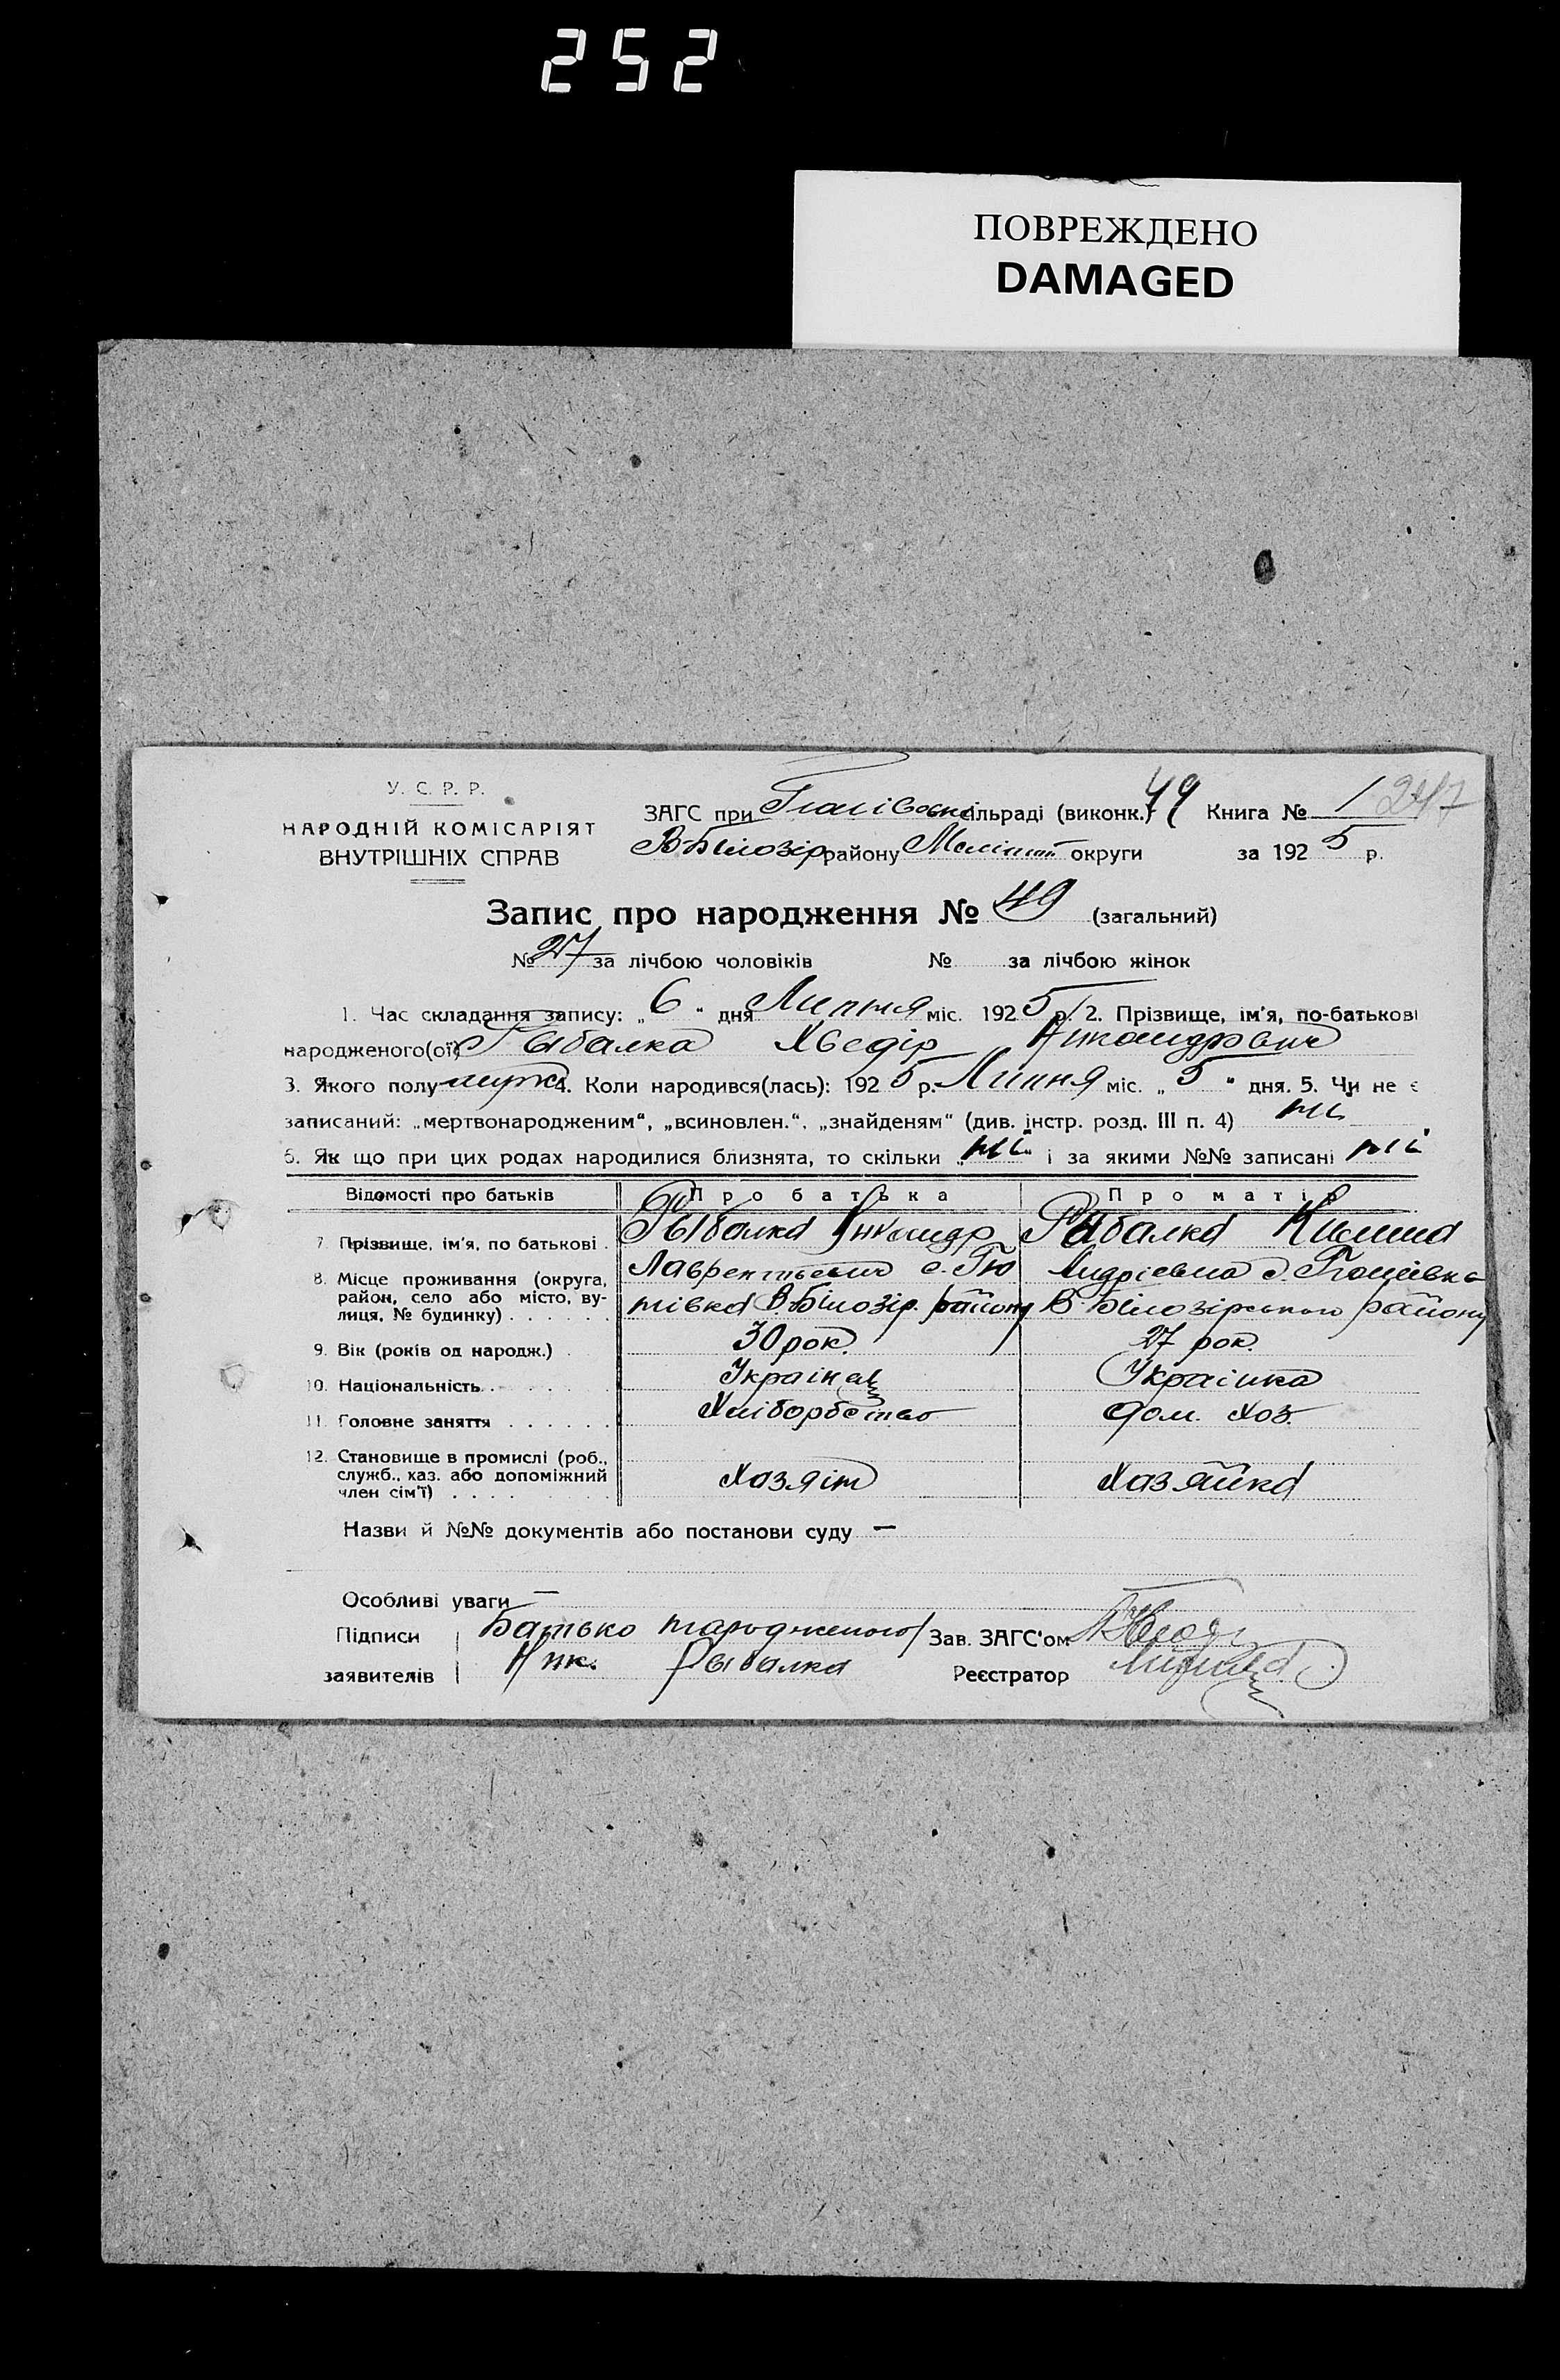 252
ПОВРЕЖДЕНО
DAMAGED
У. С. Р. Р.
НАРОДНІЙ КОМІСАРІЯТ
ВНУТРІШНІХ СПРАВ
ЗАГС при сільраді (виконк.) 49 Книга № 1 247
В Білозір району Меліт округи за 1925 р.
Запис про народження № 49 (загальний)
№ 27 за лічбою чоловіків № за лічбою жінок
1. Час складання запису: „6“ дня Липня міс. 1925 р. 2. Прізвище, ім'я, по-батькові
народженого(ої) Рыбалка Хведір Никандрович
3. Якого полу мужс 4. Коли народився(лась): 1925 р. Липня міс. „5“ дня. 5. Чи не є
записаний: „мертвонародженим“, „всиновлен.“, „знайденям“ (див. інстр. розд. III п. 4) ні
6. Як що при цих родах народилися близнята, то скільки „ні“ і за якими №№ записані ні
Відомості про батьків Про батька Про матір
7. Прізвище, ім'я, по батькові . Рыбалка Никандр Рыбалка
8. Місце проживання (округа, район, село або місто, вулиця, № будинку) . . . . . . Лаврентьевич с. Тю Андріевна с.
нівка В. Білозір. району В. Білозірського району
9. Вік (років од народж.) . 30 рок. 27 рок.
10. Національність . . . . . . Українец Українка
11. Головне заняття . . . . . . Хліборобство Дом. Хоз.
12. Становище в промислі (роб., служб., хаз. або допоміжний член сім'ї) . . . . . . Хазяін Хазяйка
Назви й №№ документів або постанови суду —
Особливі уваги —
Підписи Батько народженого Зав. ЗАГС'ом
заявителів Ник. Рыбалка Реєстратор